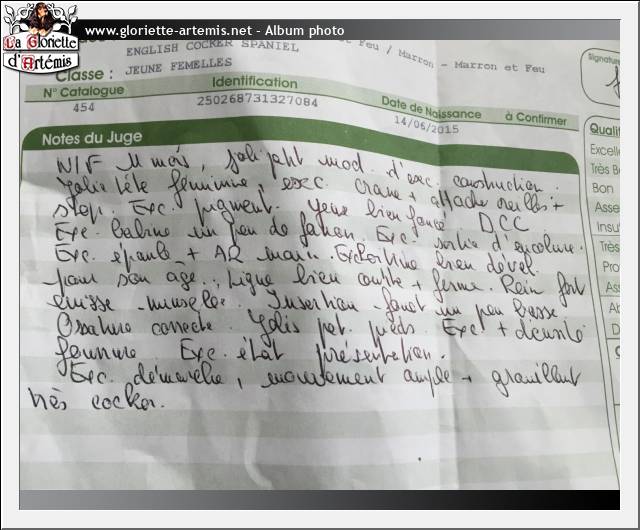 www.gloriette-artemis.net - Album photo
La Gloriette
d'Artémis
et Feu / Marron - Marron et Feu
ENGLISH COCKER SPANIEL
Classe : JEUNE FEMELLES
N° Catalogue
Identification
Date de Naissance
à Confirmer
454
250268731327084
14/06/2015
Signature
Notes du Juge
N/F 11 mois, joli petit mod. d'exc. construction.
Jolie tête féminine, exc. crane + attache oreilles +
stop. Exc. pigment. Yeux bien foncé DCC
Exc. babine un peu de fanon. Exc. sortie d'encolure.
Exc. épaule + AR main. Exc. Poitrine bien dével.
pour son age. Ligne bien courte + ferme. Rein fort
cuisse musclée. Insertion fouet un peu basse
Ossature correcte. Jolis pet. pieds. Exc. + densité
féminine. Exc. état présentation.
Exc. démarche, mouvement ample + grouillant
très cocker.
Quali
Excelle
Très B
Bon
Asse
Insu
Très
Pro
Ass
Ab
D